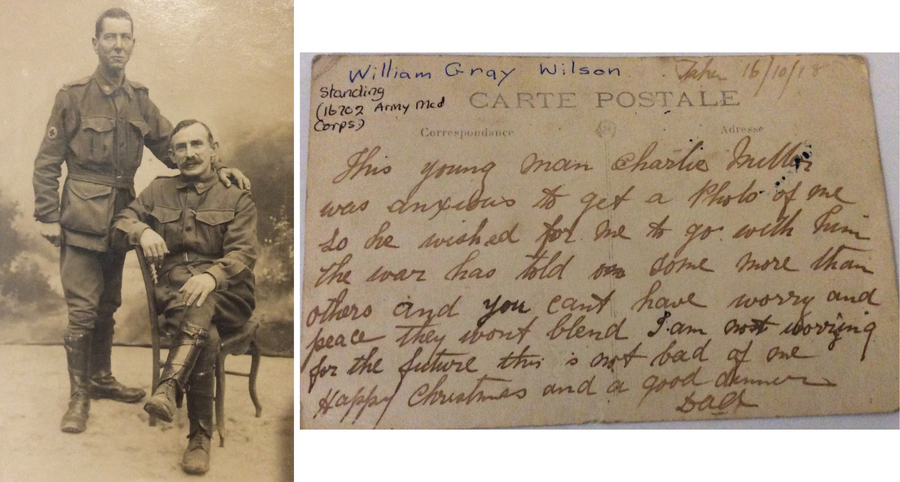 William Gray Wilson
Taken 16/10/18
Standing
(16702 Army Med
Corps)
CARTE POSTALE
Correspondance
Adresse
This young man Charlie Miller
was anxious to get a Photo of me
so he wished for me to go with him
the war has told on some more than
others and you cant have worry and
peace they wont blend I am not worrying
for the future this is not bad of me
Happy Christmas and a good dinner
Dad